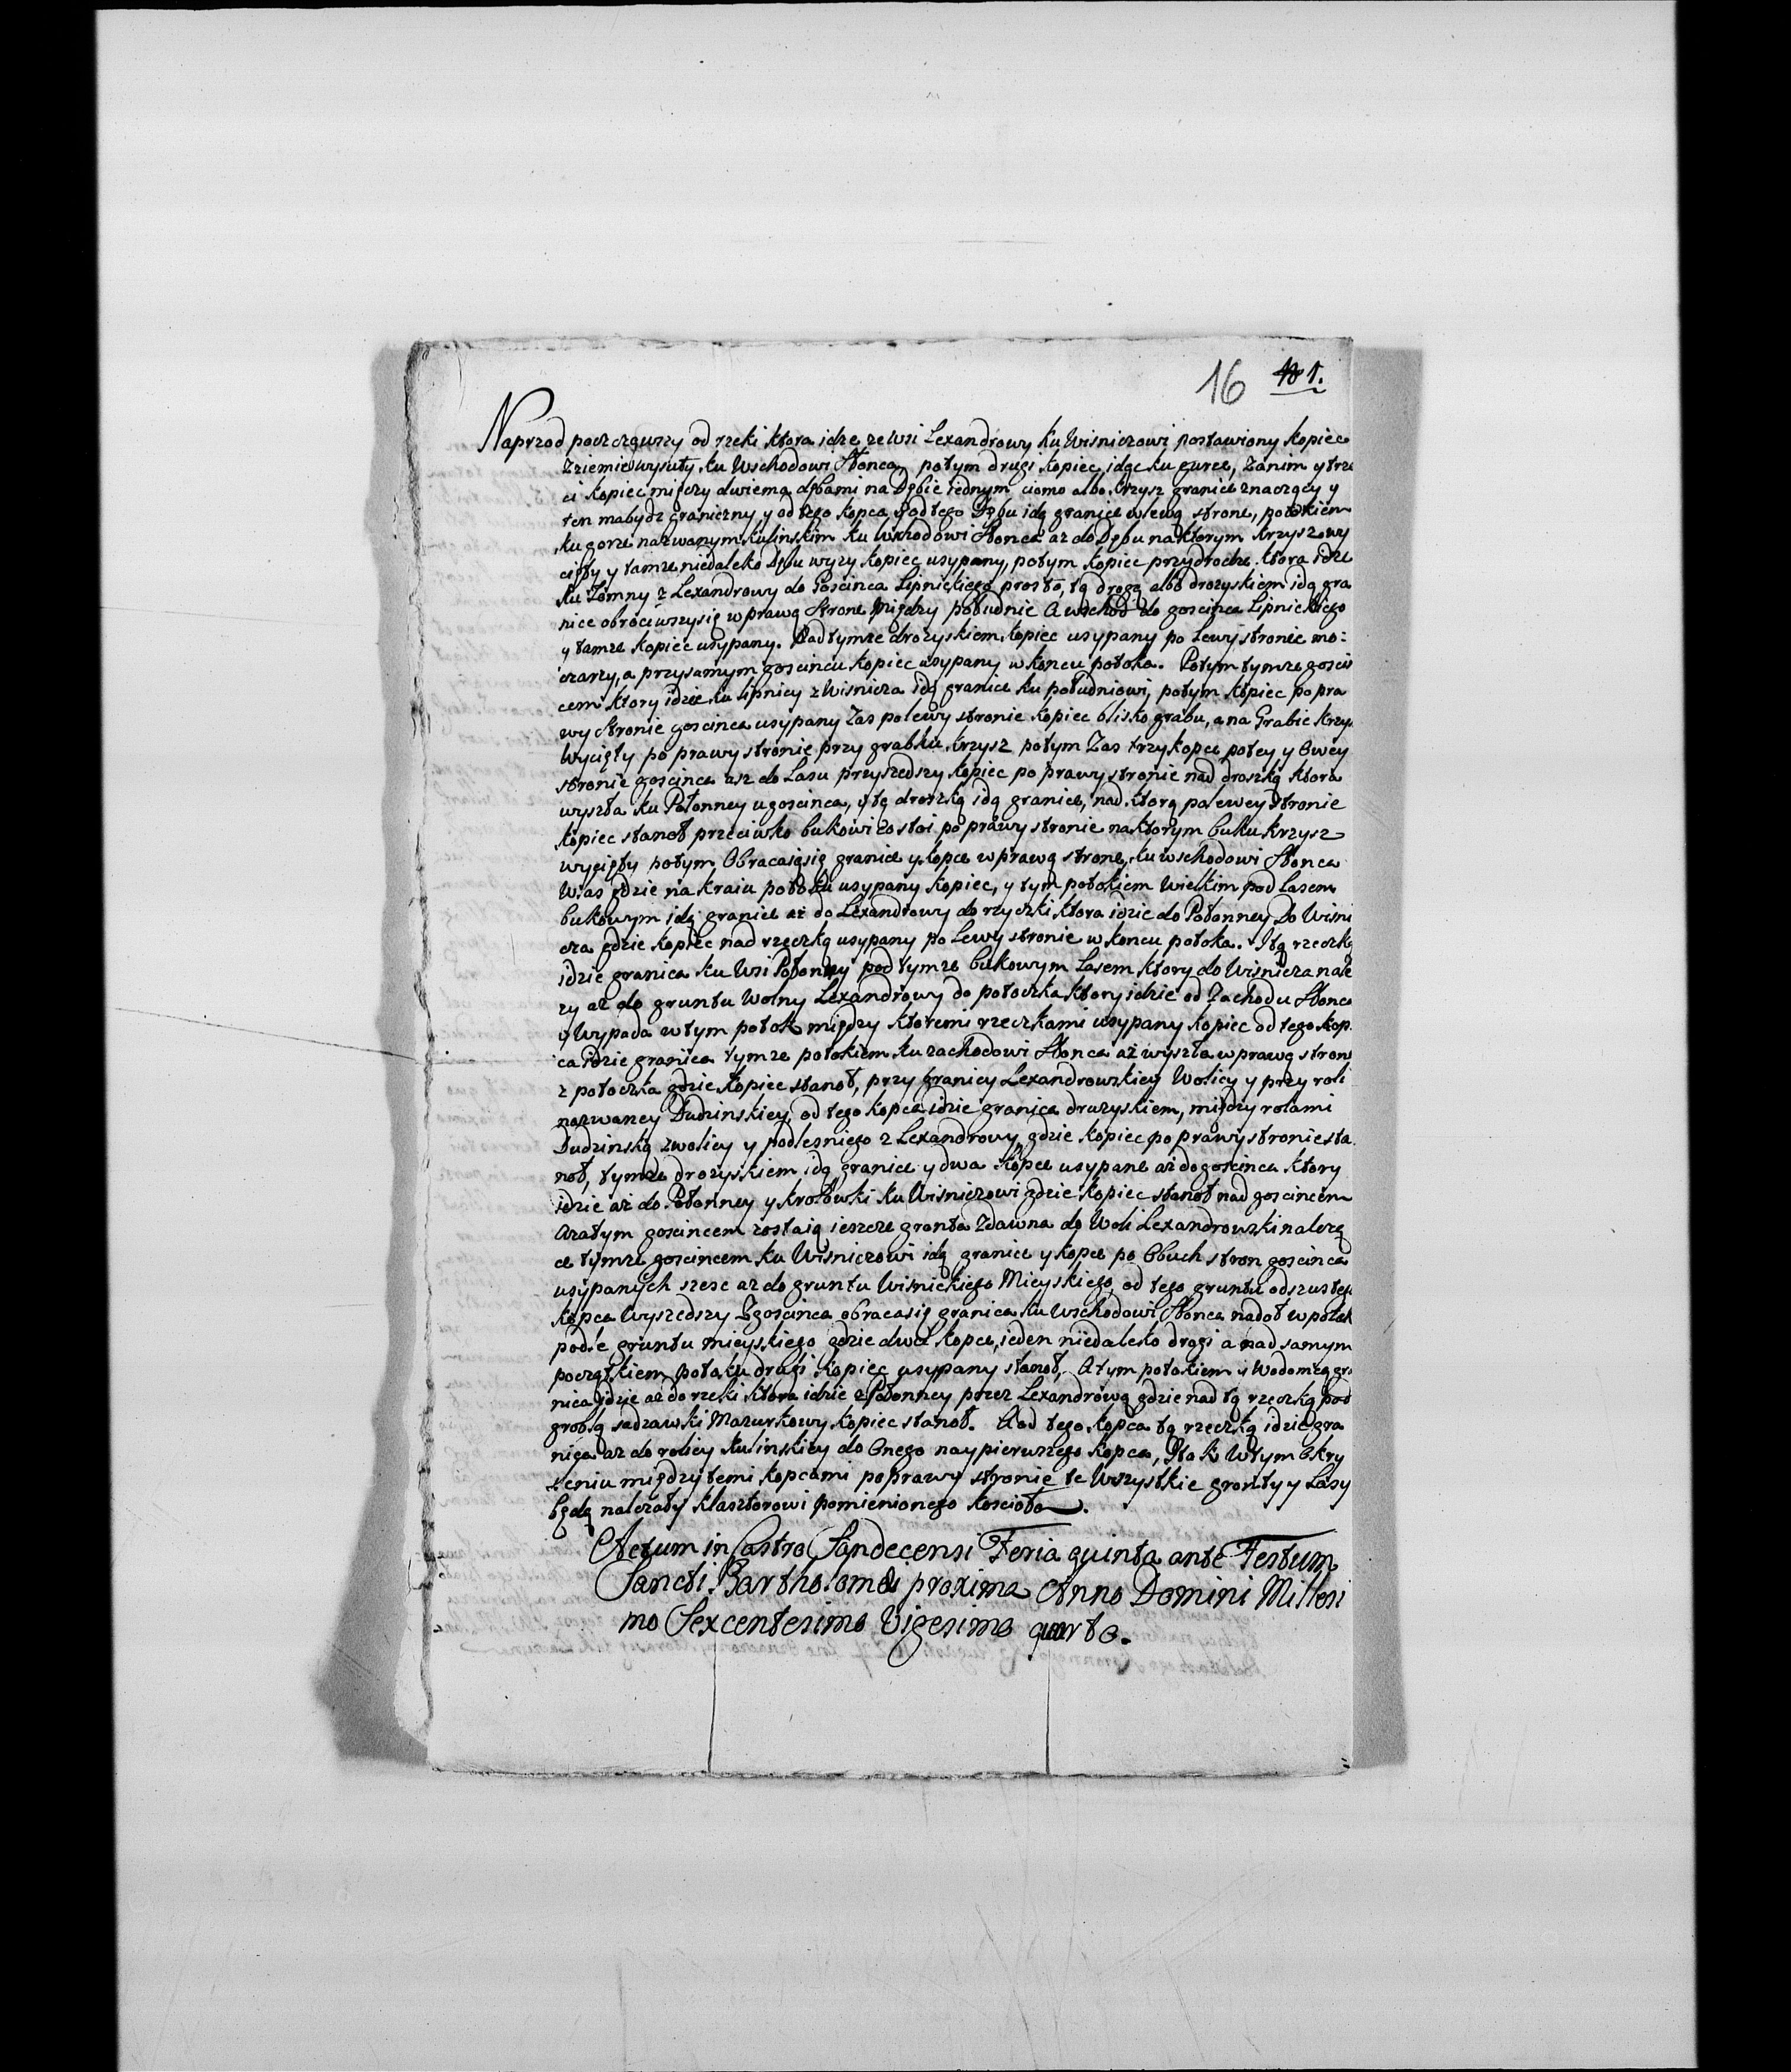 16 N 1.
Naprzod począwszy od rzeki ktora idze ze Wsi Lexandrowy ku Wisniczowi, postawiony kopiec
z ziemie wysuty, ku Wschodowi Słonca, potym drugi kopiec, idąc ku gurce, Zanim y trze
ci kopiec między dwiema dębami na Dębie iednym ciomo albo krzysz granice znaczący y
ten mabydz graniczny y od tego kopca y od tego Dębu idą granice w lewą strone, potokiem
ku gorze nazwanym Kulinskim ku Wschodowi Słonca az do Dębu na ktorym krzysz wy
cięty y tamze niedaleko Dębu wyzy kopiec usypany, potym kopiec przydrodze ktora idze
ku Łomny z Lexandrowy do Goscinca Lipnickiego prosto, tą drogą albo drozyskiem idą gra
nice obrociwszysię w prawą Strone między południe A wschod do goscinca Lipnickiego
y tamze kopiec usypany. Nad tymze drozyskiem kopiec usypany po Lewy stronie mo:
czarzy, a przysamym goscincu kopiec usypany w koncu potoka. Potym tymze gosciń
cem ktory idzie ku Lipnicy z Wisnicza idą granice ku południowi, potym kopiec po pra
wy Stronie goscinca usypany Zas polewy stronie kopiec blisko grabu, a na Grabie krzy
Wycięty po prawy stronie przy grabku krzysz potym Zas trzy kopce po tey y Owey
stronie goscinca asz do Lasu przyszedszy kopiec po prawy stronie nad droszką ktora
wyszła ku Połonney ugoscinca, y tą droszką idą granice, nad ktorą polewey stronie
kopiec stanoł przeciwko bukowi co stoi po prawy stronie na ktorym buku krzysz
wycięty potym Obracaiąsię granice y kopce w prawą strone, ku wschodowi Słonca
W las gdzie na kraiu potoka usypany kopiec, y tym potokiem Wielkim pod Lasem
bukowym idą granice az do Lexandrowy do rzyczki ktora idzie do Połonney Do Wisni
cza gdzie kopiec nad rzeczką usypany po Lewy stronie w koncu potoka. Ytą rzeczką
idzie granica ku Wsi Połonny pod tymze bukowym Lasem ktory do Wisnicza nale
zy az do gruntu Wolny Lexandrowy do potoczka ktory idzie od Zachodu Słonca
y Wypada w tym potok między ktoremi rzeczkami usypany kopiec od tego kop
ca idzie granica tymze potokiem ku zachodowi Słonca az wyszła w prawą strone
z potoczka gdzie kopiec stanoł, przy granicy Lexandrowskiey Wolicy y przy roli
nazwaney Dudzinskiey, od tego kopca idzie granica druzyskiem, między rolami
Dudzinską z wolicy y podlesniego z Lexandrowy, gdzie kopiec po prawy stronie sta
noł, tymze drozyskiem idą granice y dwa kopce usypane az do goscinca ktory
idzie az do Połonney y Krolowki ku Wisniczowi gdzie kopiec stanoł nad goscincem
Azatym goscincem zostaią ieszcze gronta Zdawna do Woli Lexandrowski nalezą
ce tymze goscincem ku Wisniczowi idą granice y kopce po Obuch stron goscinca
usypanych szesc az do gruntu Wisnickiego Mieyskiego, od tego gruntu od szustego
kopca Wyszedszy Zgoscinca obracasię granica ku Wschodowi Słonca nadoł w potok
podle gruntu mieyskiego gdzie dwa kopce, ieden niedaleko drogi a nad samym
początkiem potoku drugi kopiec usypany stanoł, Atym potokiem y Wodomią gra
nica idzie az do rzeki ktora idzie z Połonney przez Lexandrową gdzie nad tą rzeczką pod
groblą sadzawki Mazurkowy kopiec stanoł. A od tego kopca tą rzeczką idzie gra
nica az do rolicy Kulinskiey do Onego naypierwszego kopca, Ytak Wtym Okry
zeniu między temi kopcami poprawy stronie te Wszystkie gronty y Lasy
będą nalezały klasztorowi pomienionego koscioła.
Actum in Castro Sandecensi Feria quinta ante Festum
Sancti Bartholomæi proxima Anno Domini Millesi
mo Sexcentesimo Vigesimo quarto.